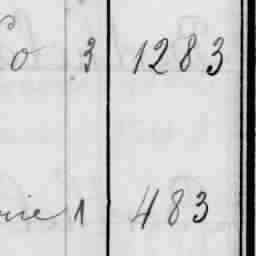 o 3 1283
rie 1 483